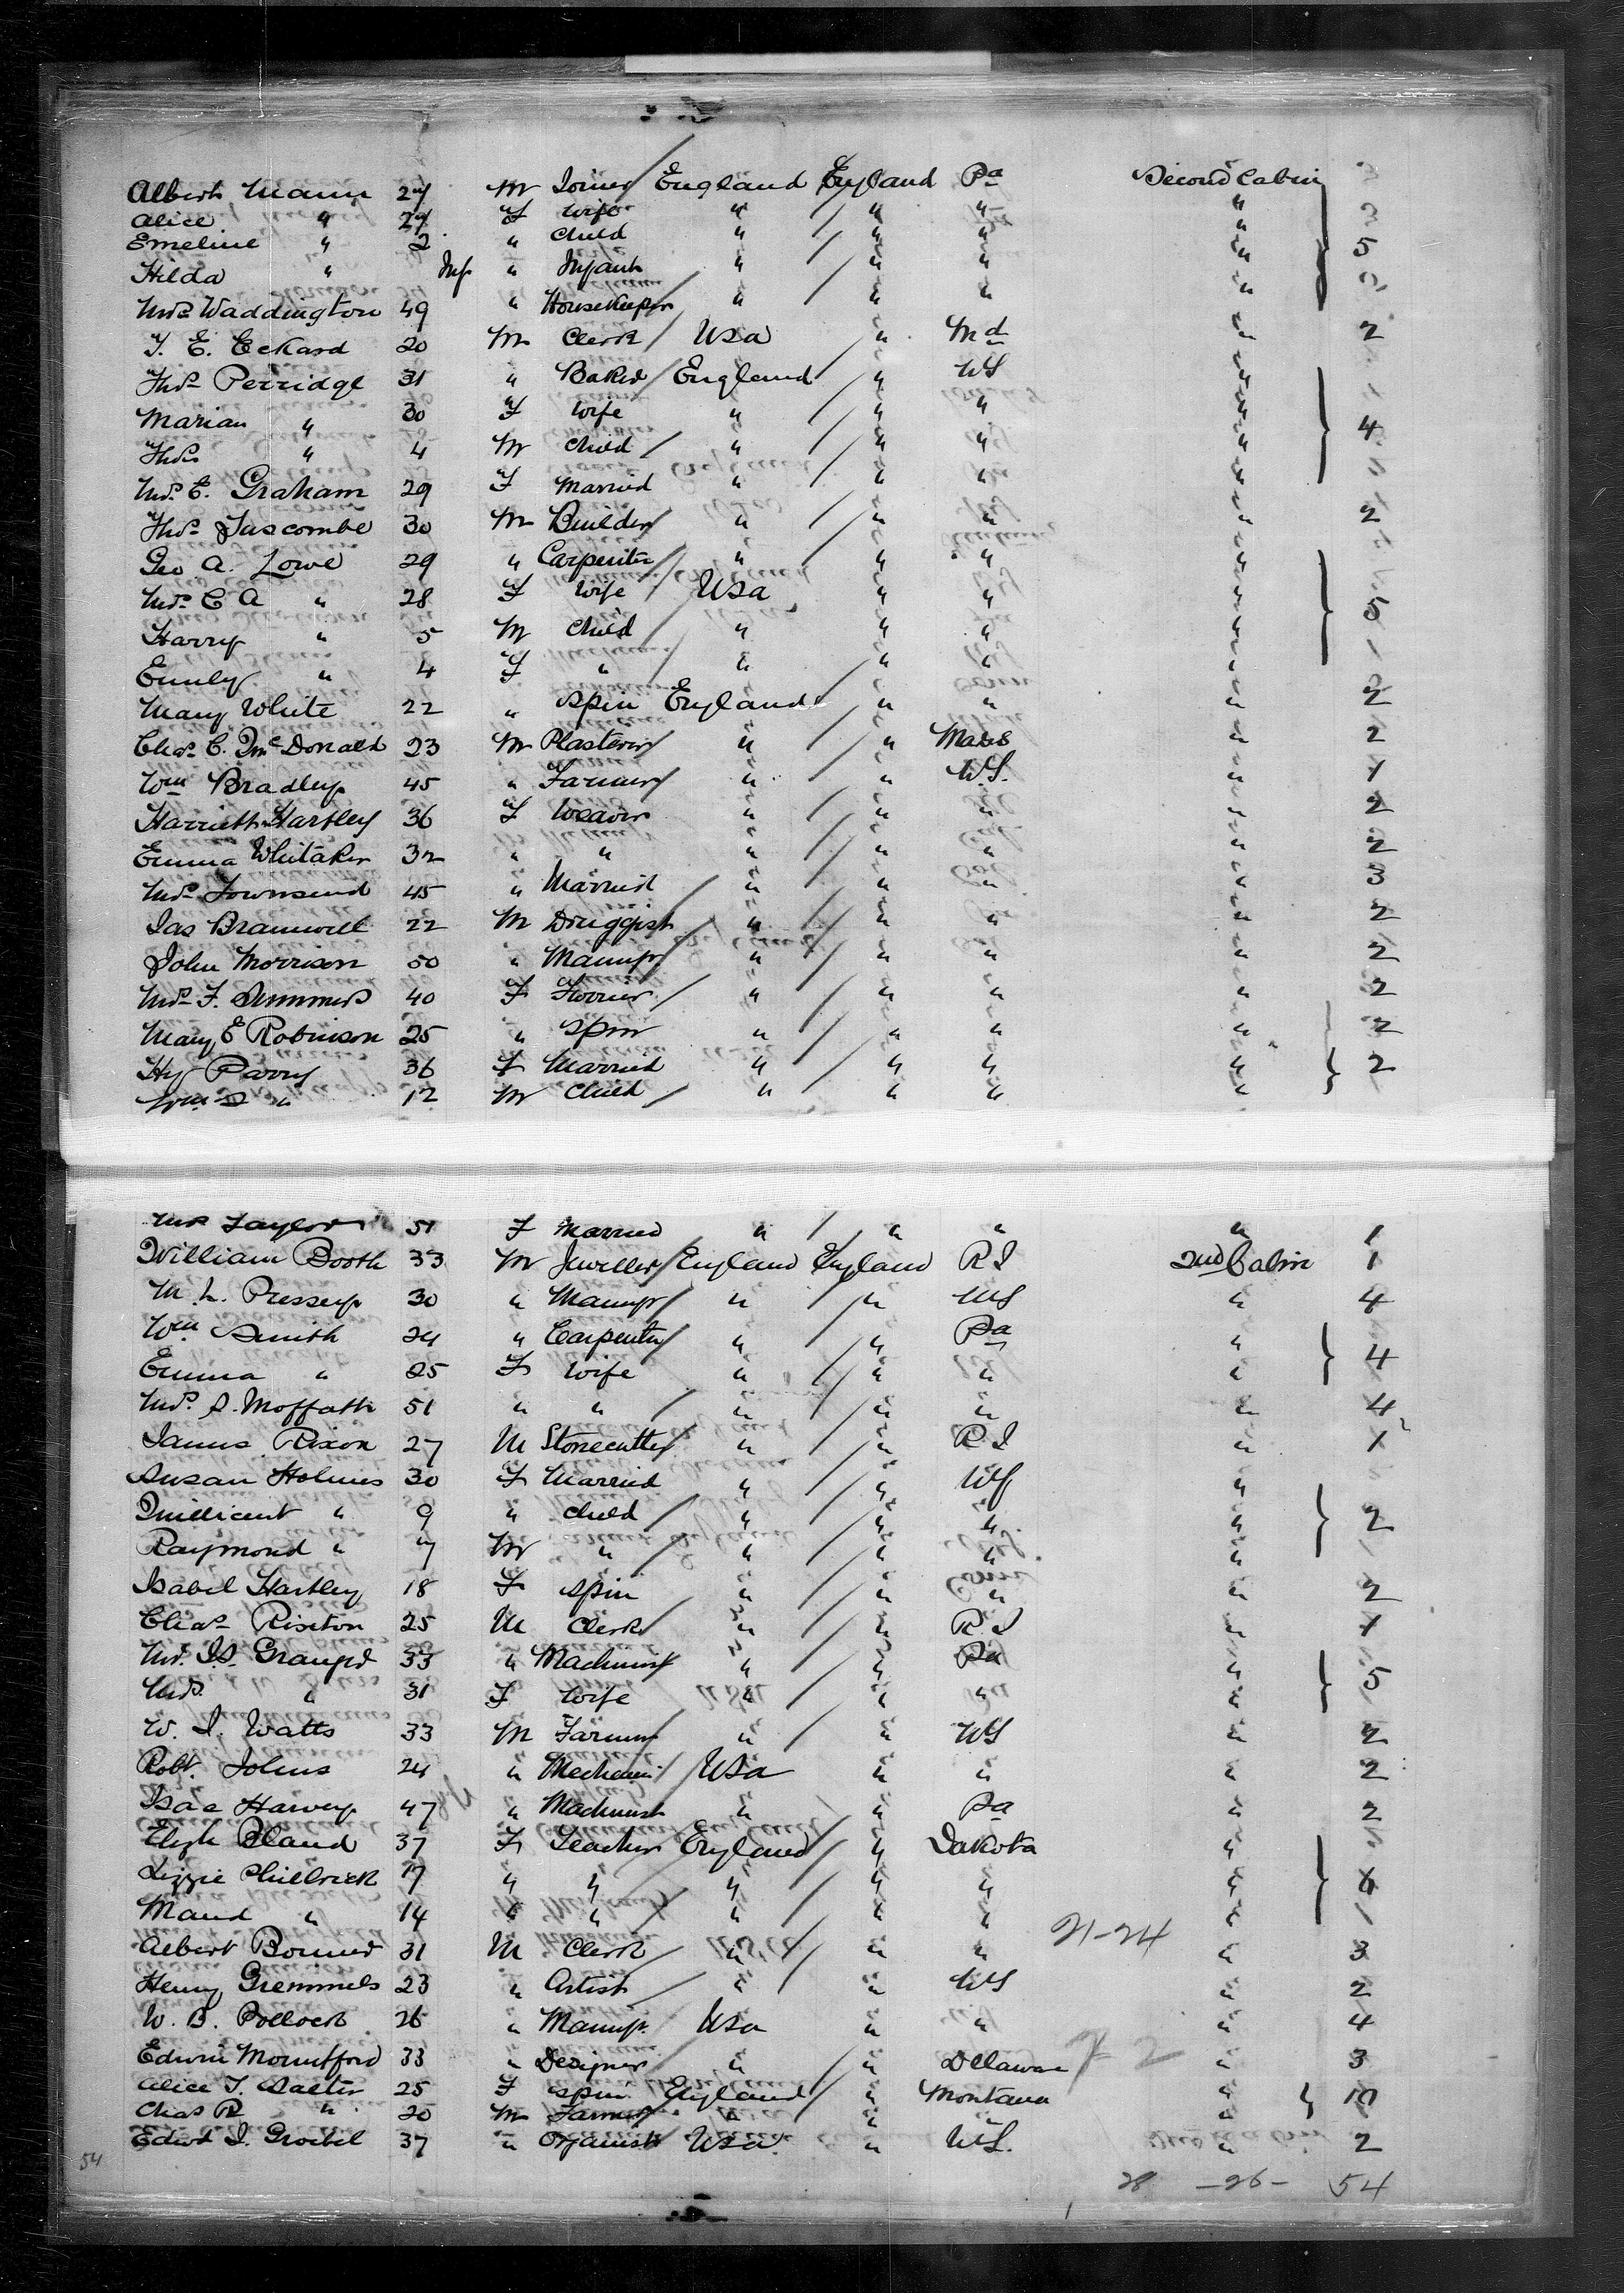 Albert Mann 27 M Joiner England England Pa Second Cabin
Alice " 27 F Wife " " " "
Emeline " 2 " Child " " " " 5
Hilda " Inf " Infant " " " "
Mrs Waddington 49 " Housekeeper " " " "
T. E. Eckard 20 M Clerk USa " Md " 2
Thos Perridge 31 " Baker England " US "
Marian " 30 F Wife " " " "
Thos " 4 M Child " " " " 4
Mrs E. Graham 29 F Married " " " "
Thos Luscombe 30 M Builder " " " " 2
Geo A. Lowe 29 " Carpenter " " " "
Mrs C A " 28 F Wife USa " " "
Harry " 5 M Child " " " " 5
Emily " 4 F " " " " "
Mary White 22 " Spin England " " " 2
Chas. C. McDonald 23 M Plasterer " " Mass " 2
Wm Bradley 45 " Farmer " " U.S. " 1
Harriett Hartley 36 F Weaver " " " " 2
Emma Whitaker 32 " " " " " " 2
Mrs Townsend 45 " Married " " " " 3
Jas Bramwell 22 M Druggist " " " " 2
John Morrison 50 " Manufr " " " " 2
Mrs F. Summers 40 F " " " " 2
Mary E Robinson 25 " Spin " " " " 2
Hy Parry 36 F Married " " " " 2
Wm S " 12 M Child " " " "
Mrs Taylor 51 F Married " " " " 1
William Booth 33 M Jweller England England R I 2nd Cabin 1
M. L. Pressey 30 " Manufr " " US " 4
Wm Smith 24 " Carpenter " " Pa "
Emma " 25 F Wife " " " " 4
Mrs. S. Moffatt 51 " " " " " " 4
James Rixon 27 M Stonecutter " " R I " 1
Susan Holmes 30 F Married " " US "
Millicent " 9 " Child " " " " 2
Raymond " 7 M " " " " "
Isabel Hartley 18 F Spin " " " " 2
Chas Riseton 25 M Clerk " " R. I " 1
33 " Machinist " " Pa "
Mrs. " 31 F Wife " " " " 5
W. J. Watts 33 M Farmer " " US " 2
Robt. Johns 24 " Mechanic USa " " " 2
Isac Harvey 47 " Machinist " " Pa " 2
Elizh Bland 37 F Teacher England " Dakota "
Lizzie Philbrick 17 " " " " " " 4
Maud " 14 " " " " " "
Albert Bonner 31 M Clerk " " " 21-24 " 3
Henry Gremmels 23 " Artist " " US " 2
W. B. Pollock 26 " Manufr. USa " " " 4
Edwin Mountford 33 " Designer " " Delaware " 3
Alice T. Salter 25 F Spin England " Montana " 10
Chas R " 20 M Farmer " " " "
Edwd J. Groebel 37 " Organist USa " US. " 2
54 28 -26- 54